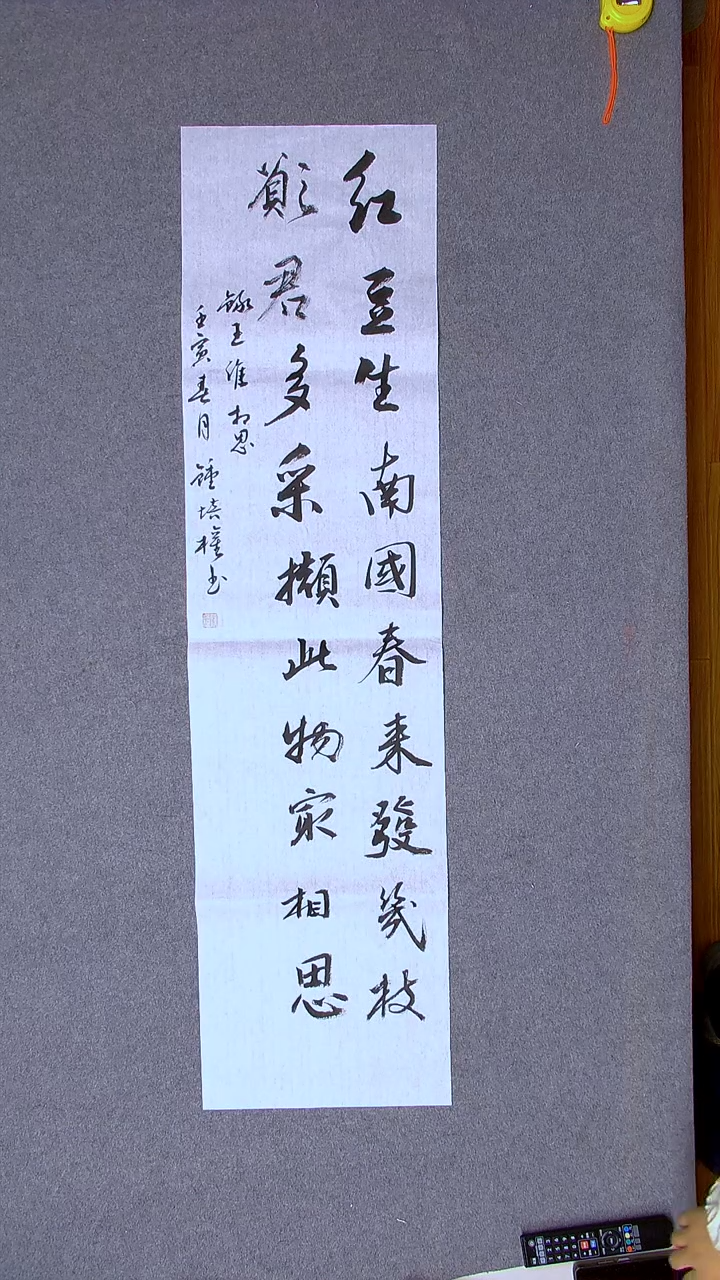 紅豆生南國春來發幾枝
願君多采擷此物最相思
錄王維相思
壬寅春月鍾培權书